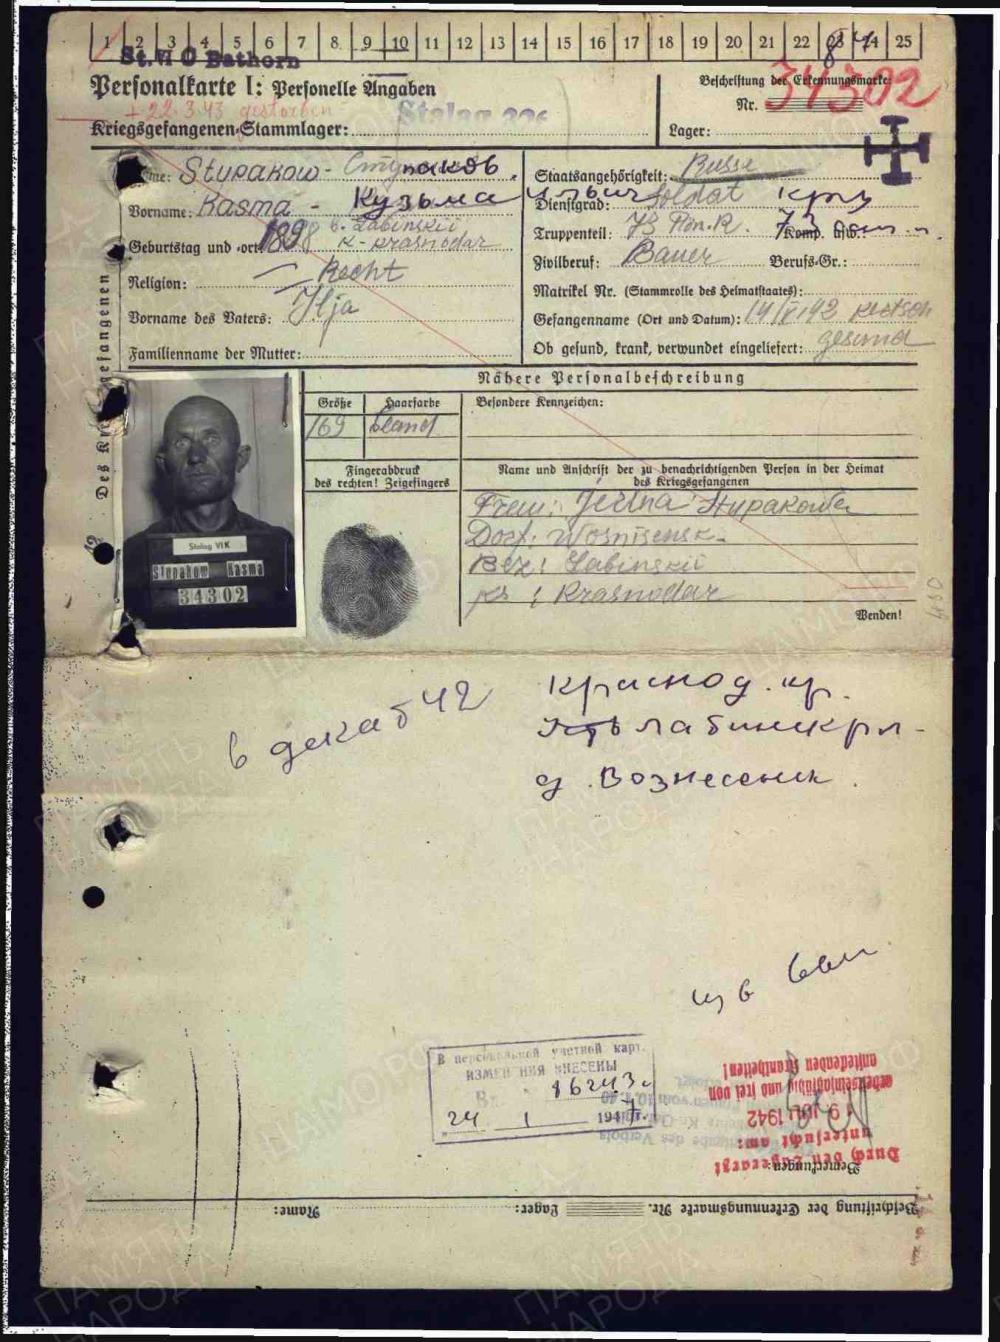 1 2 3 4 5 6 7 8 9 10 11 12 13 14 15 16 17 18 19 20 21 22 23 24 25
St. VI C Bathorn
Personalkarte I: Personelle Angaben
Beschriftung der Erkennungsmarke
Nr. 34302
+ 22.3.43 gestorben
Kriegsgefangenen-Stammlager: Stalag 326
Lager:
Des Kriegsgefangenen
Name: Stupakow - Ступаков
Staatsangehörigkeit: Russe
Vorname: Kasma - Кузьма Ильич
Dienstgrad: Soldat
Geburtstag und -ort: 1898 b. Labinskii
K-Krasnodar
Truppenteil:
Komp. usw.:
Zivilberuf: Bauer Berufs-Gr.:
Religion: Recht
Matrikel Nr. (Stammrolle des Heimatstaates):
Vorname des Vaters: Ilja
Gefangenname (Ort und Datum): 14/V.42 Kertsch
Familienname der Mutter:
Ob gesund, krank, verwundet eingeliefert: gesund
Nähere Personalbeschreibung
Größe Haarfarbe Besondere Kennzeichen:
169 bland
Fingerabdruck
des rechten! Zeigefingers
Name und Anschrift der zu benachrichtigenden Person in der Heimat
des Kriegsgefangenen
Frau: Stupakowa
Dorf: Wosnesensk.
Bez: Labinskii
Kr: Krasnodar
Wenden!
Stalag VI K
Stupakow Kasma
34302
в декаб 42
Краснод. кр.
д. Вознесенск.
В персональной учетной карт.
ИЗМЕНЕНИЯ ВНЕСЕНЫ
86243с
24 1 1947г.
Bemerkungen:
Durch den Lagerarzt
untersucht am:
9. Juli 1942
arbeitseinsatzfähig und frei von
ansteckenden Krankheiten!
Beschriftung der Erkennungsmarke Nr. Lager: Name:
ПАМЯТЬ НАРОДА
ПАМЯТЬ НАРОДА